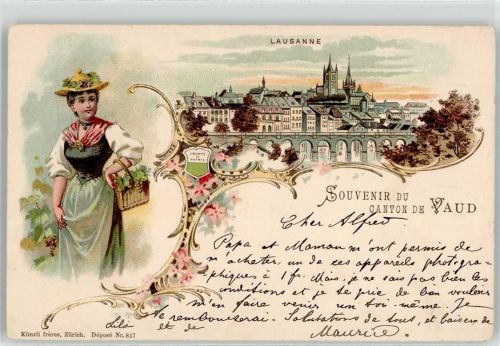 LAUSANNE
SOUVENIR DU
CANTON DE VAUD
Cher Alfred
Papa et Maman m'ont permis de
m'acheter un de ces appareils photogra-
phiques à 1 fr. Mais, je ne sais pas bien les
conditions et je te prie de bien vouloir
m'en faire venir un toi-même. Je
te rembourserai. Salutations de tous, et baisers de
Lilo et de Maurice.
Künzli frères, Zürich. Déposé Nr. 817